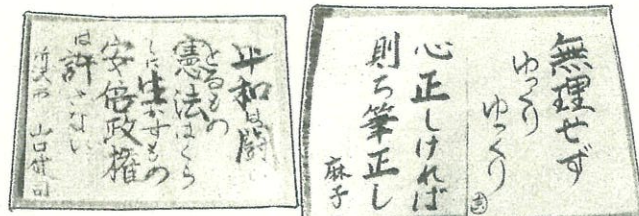 無理せず
ゆっくり
ゆっくり
心正しければ
則ち筆正し
麻子
平和は闘い
とるもの
憲法はくら
しに生かすもの
安倍政権
は許さない
山口